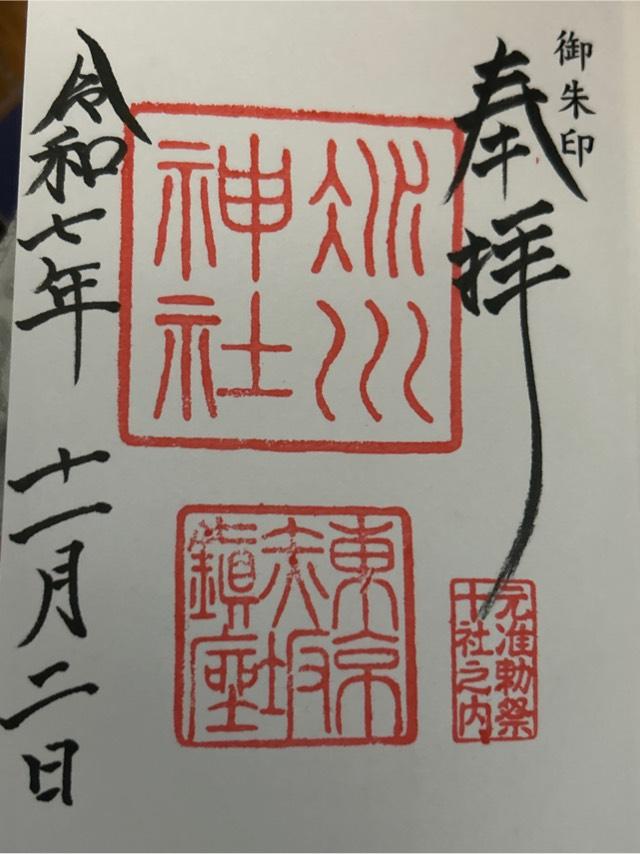 御朱印
奉拝
氷川
神社
東京
赤坂
鎮座
元准勅祭
十社之内
令和七年 十一月二日